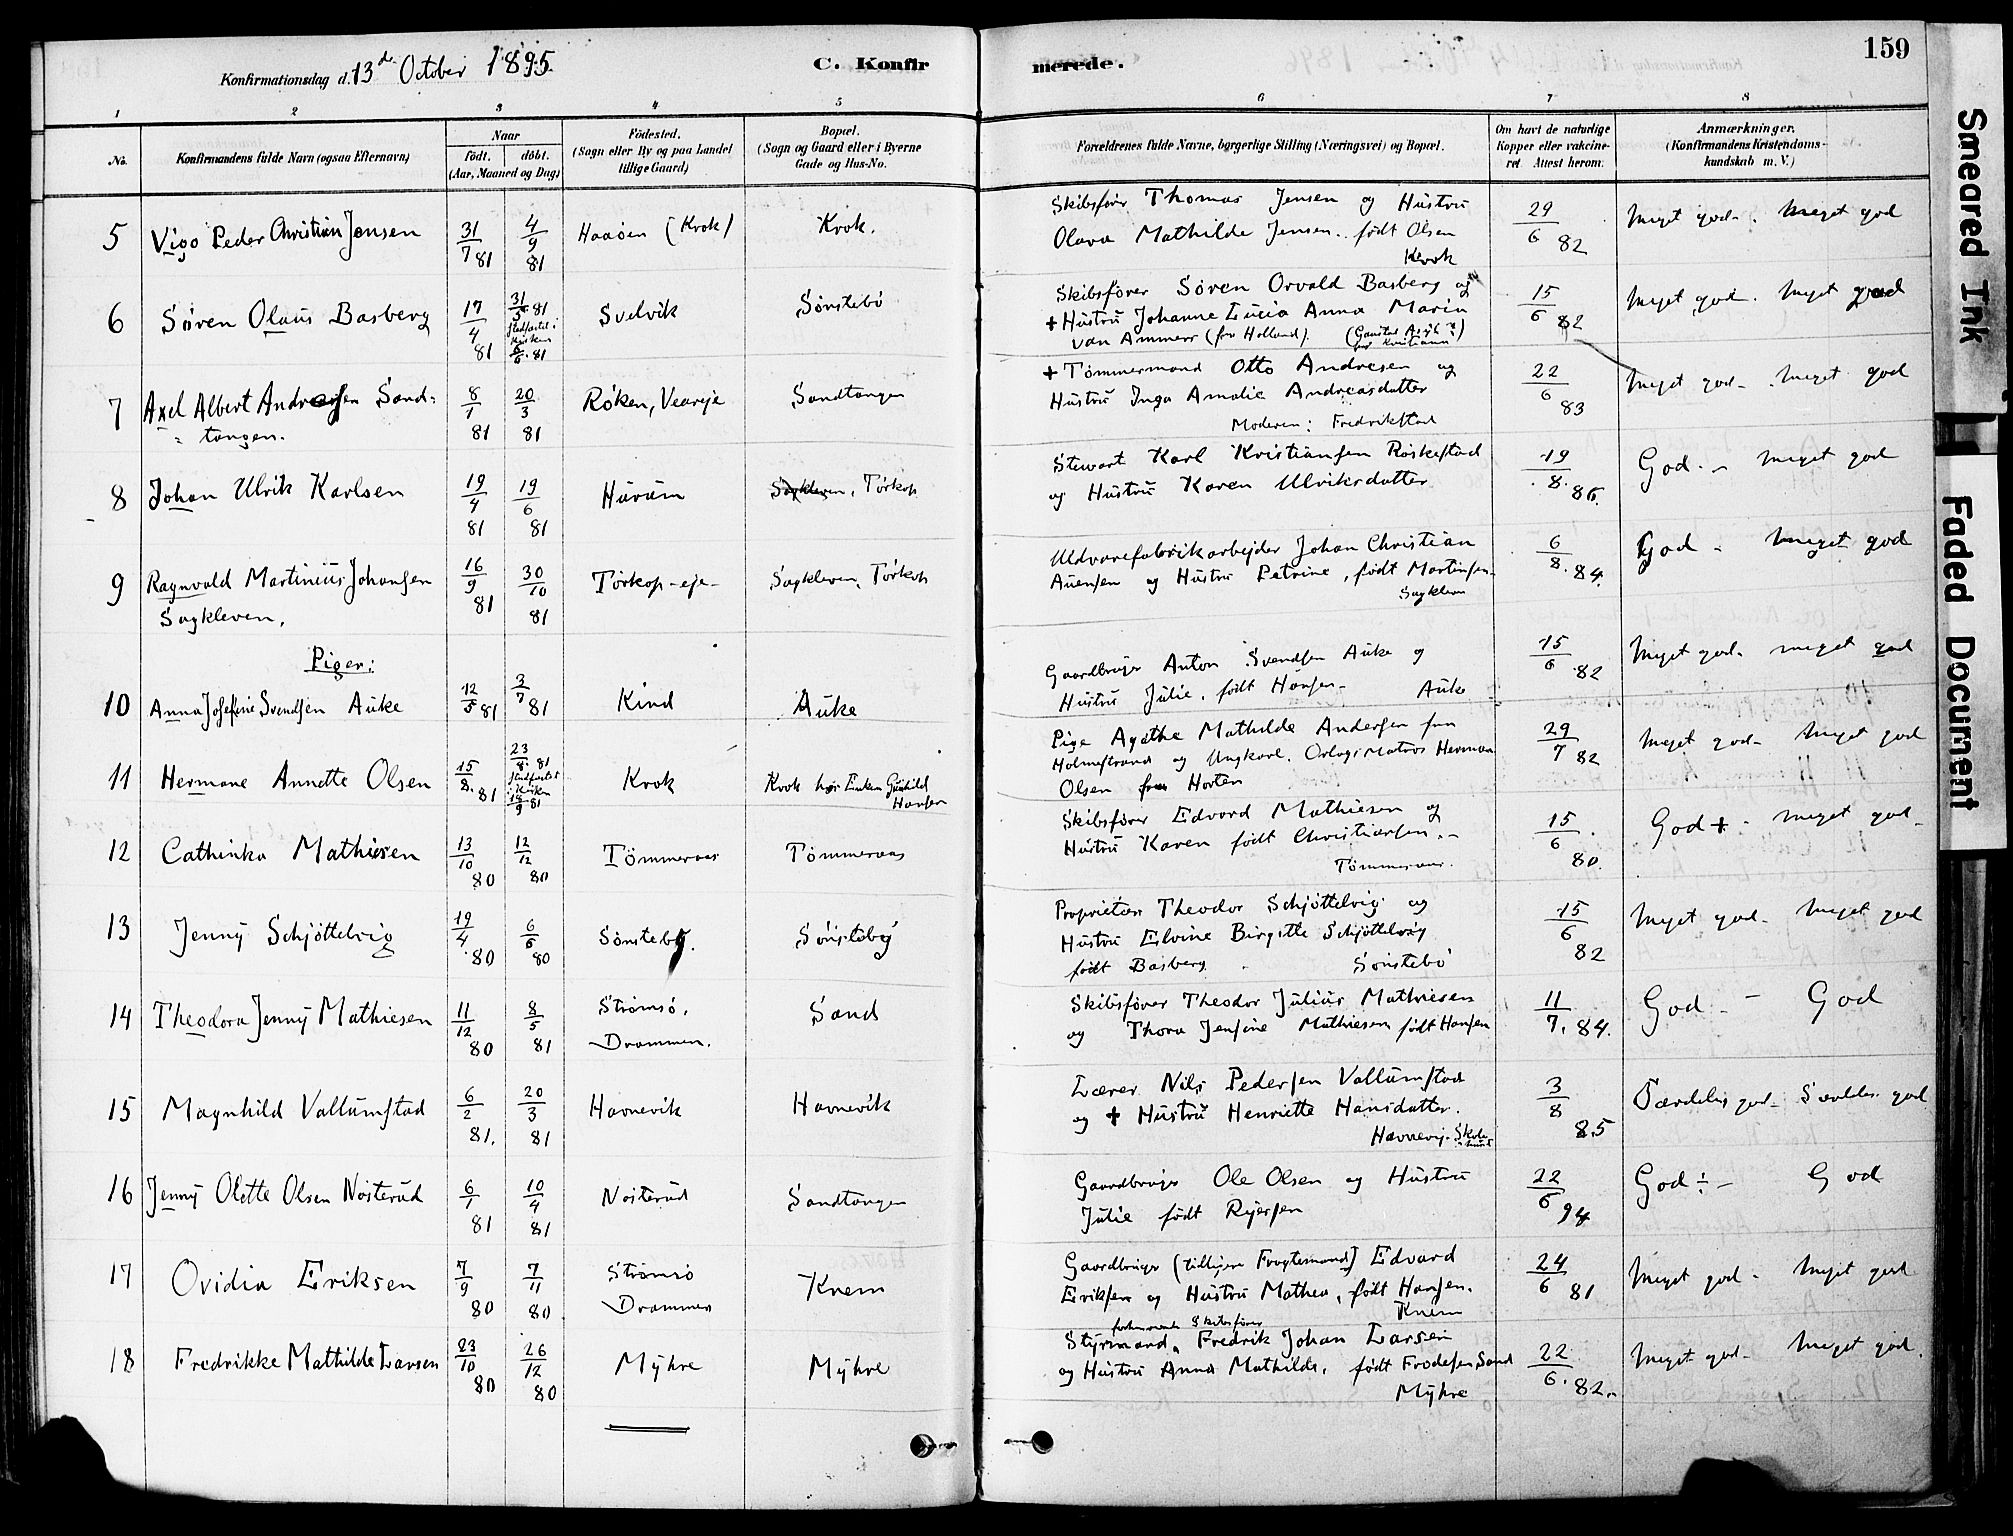 Konfirmationsdag d. 13de October 1895.
C. Konfirmerede.
159
1 2 3 4 5 6 7 8
No.
Konfirmandens fulde Navn (ogsaa Efternavn)
Naar
födt. döbt.
(Aar, Maaned og Dag)
Födested.
(Sogn eller By og paa Landet
tillige Gaard)
Bopæl.
(Sogn og Gaard eller i Byerne
Gade og Hus-No.
Forældrenes fulde Navne, borgerlige Stilling (Næringsvei) og Bopæl.
Om havt de naturlige
Kopper eller vakcine-
ret. Attest herom.
Anmærkninger.
(Konfirmandens Kristendoms-
kundskab m. V.)
5 Vigo Peder Christian Jensen 31/7 81 4/9 81 Haaöen (Krok) Krok.
Skibsfører Thomas Jensen og Hustru
Olava Mathilde Jensen. født Olsen
Krok
29/6 82 Meget god - Meget god
6 Søren Olaus Basberg 17/4 81 31/5 81 stadfæstet i Kirken 6/6 81 Svelvik Sønstebö
Skibsfører Søren Orvald Basberg og
+ Hustru Johanne Lucia Anna Maria
van Ammers (fra Holland).
15/6 82 Meget god. Meget god
7 Axel Albert Andresen Sand-
tangen. 8/1 81 20/3 81 Røken, Veareje Sandtangen
+ Tømmermand Otto Andresen og
Hustru Inga Amalie Andreasdatter
Moderen: Fredrikstad
22/6 83 Meget god - Meget god
8 Johan Ulrik Karlsen 19/4 81 19/6 81 Hurum Sagkleven, Tørkop
Stewart Karl Kristiansen Røskestad
og Hustru Karen Ulriksdatter
19/8. 86. God. - Meget god
9 Ragnvald Martinius Johansen
Sagkleven. 16/9 81 30/10 81 Tørkop-eje- Sagkleven, Tørkop
Uldvarefabrikarbejder Johan Christian
Auensen og Hustru Petrine, født Martinsen
Sagkleven
6/8. 84. God - Meget god
Piger:
10 Anna Josefine Svendsen Auke 12/5 81 3/7 81 Kind Auke
Gaardbruger Anton Svendsen Auke og
Hustru Julie, født Hansen - Auke
15/6 82 Meget god. meget god
11 Hermane Annette Olsen 15/8. 81 23/8. 81 stadfæstet i Kirken 18/9 81 Krok Krok hos Enken Gunhild
Hansen
Pige Agathe Mathilde Andersen fra
Holmestrand og Ungkarl. Orlogs Matros Herman
Olsen fra Horten
29/7 82 Meget god - Meget god
12 Cathinka Mathiesen 13/10 80 12/12 80 Tömmeraas Tömmeraas
Skibsfører Edvard Mathiesen og
Hustru Karen født Christiansen. -
Tömmeraas.
15/6 80. God + - meget god -
13 Jenny Schjöttelvig 19/4 80 6/6 80 Sønsteby. Sønsteby
Proprietær Theodor Schjöttelvig og
Hustru Elvine Birgitte Schjöttelvig
født Basberg. Sönstebö
15/6 82 Meget god - Meget god
14 Theodora Jenny Mathiesen 11/12 80 8/5 81 Strømsø,
Drammen. Sand
Skibsfører Theodor Julius Mathiesen
og Thora Jensine Mathiesen født Hansen
11/7. 84. God - God
15 Magnhild Vallumstad 6/2 81. 20/3 81 Havnevik Havnevik
Lærer Nils Pedersen Vallumstad
og + Hustru Henriette Hansdatter.
3/8 85 Særdeles god - Særdeles god
16 Jenny Olette Olsen Nøsterud 6/1 81 10/4 81 Nøsterud Sandtangen
Gaardbruger Ole Olsen og Hustru
Julie født Ryersen
22/6 94 God ÷ - God
17 Ovidia Eriksen 7/9 80 7/11 80 Strømsø
Drammen Knem
Gaardbruger (tidligere Fragtemand) Edvard
Eriksen og Hustru Mathea, født Hansen.
Knem
24/6 81 Meget god - Meget god
18 Fredrikke Mathilde Larsen 23/10 80 26/12 80 Myhre Myhre
Styrmand, forhenværende Skibsfører Fredrik Johan Larsen
og Hustru Anna Mathilde, født Frodesen Sand
Myhre
22/6. 82. Meget god - Meget god.
Smeared Ink
Faded Document